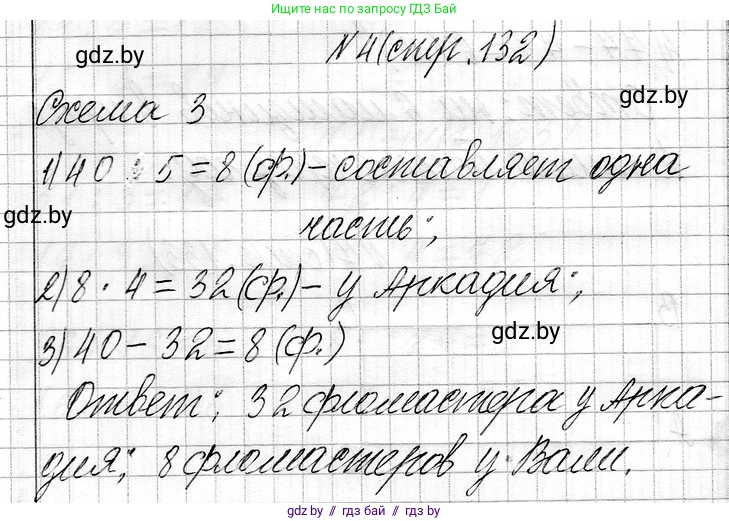 Ищите нас в поиске по запросу ГДЗ Бай
gdz.by
N 4 (стр. 132)
gdz.by
Схема 3
1) 40 : 5 = 8 (ф.) - составляет одна
gdz.by
часть;
2) 8 · 4 = 32 (ф.) - у Аркадия;
gdz.by
3) 40 - 32 = 8 (ф.)
Ответ: 32 фломастера у Арка-
дия; 8 фломастеров у Вали.
gdz.by // гдз бай // gdz.by